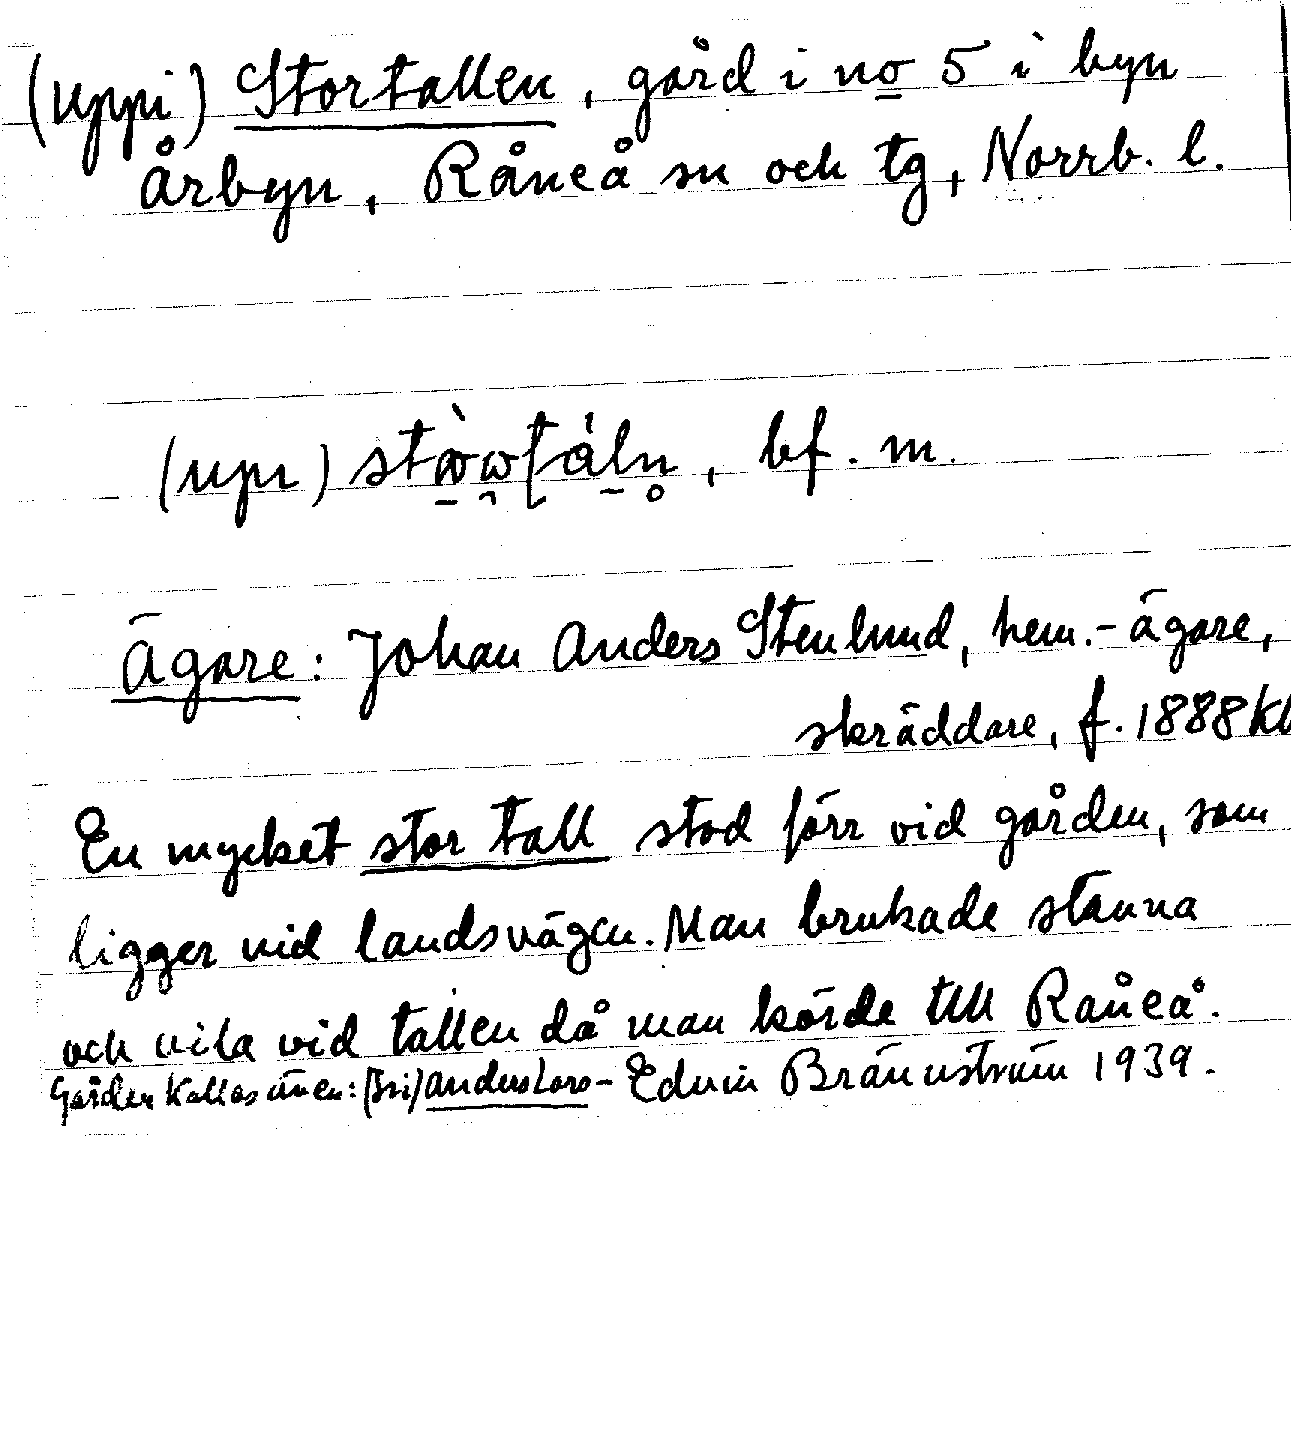 (uppi) Stortallen, gård i no 5 i byn
Årbyn, Råneå sn och tg, Norrb. l.
(upı) , bf. m.
Ägare: Johan Anders Stenlund, hem.-ägare,
skräddare, f. 1888 kl
En mycket stor tall stod förr vid gården, som
ligger vid landsvägen. Man brukade stanna
och vila vid tallen då man körde till Råneå.
Gården kallas även: (bri) AndersLars - Edvin Brännström 1939.